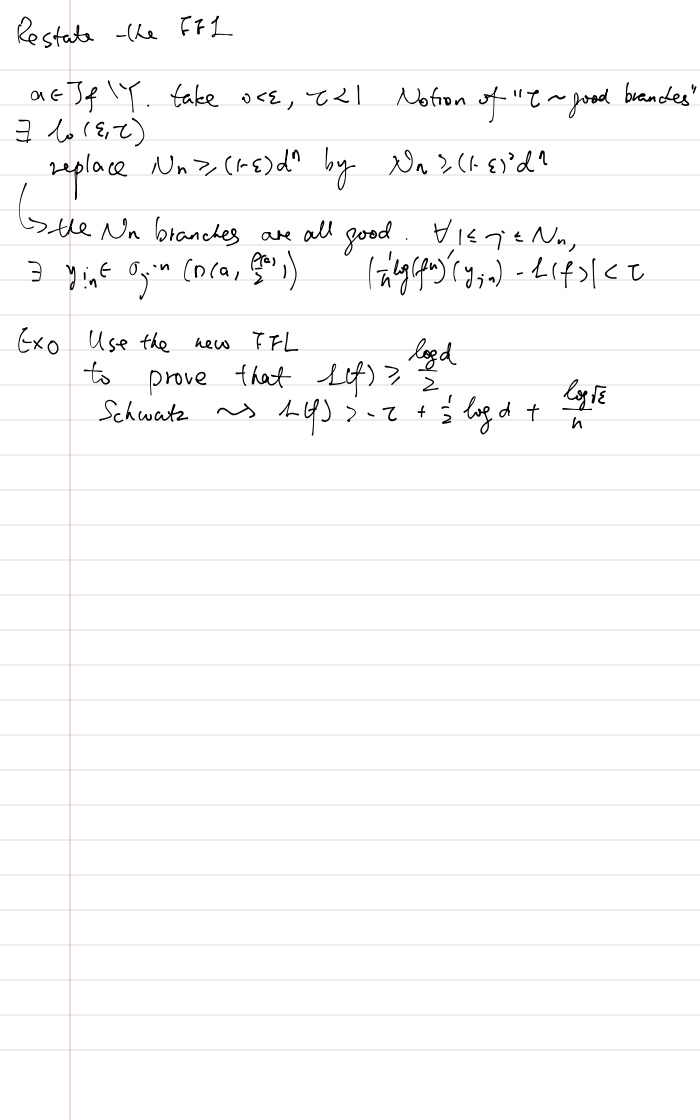 Restate the FFL
a ∈ Jf \ Y. take 0<ε, τ<1 Notion of "τ~good branches"
∃ l₀(ε,τ)
replace Nn ≥ (1-ε)dⁿ by Nn ≥ (1-ε)²dⁿ
↳ the Nn branches are all good. ∀ 1≤ j ≤ Nn,
∃ y_{j,n} ∈ σ_j^{-n} (D(a, ρ(a)/2)) |1/n log(fⁿ)'(y_{j,n}) - L(f)| < τ
Exo Use the new FFL
to prove that L(f) ≥ log d / 2
Schwatz ⤳ L(f) ≥ -τ + ½ log d + log√ε / n